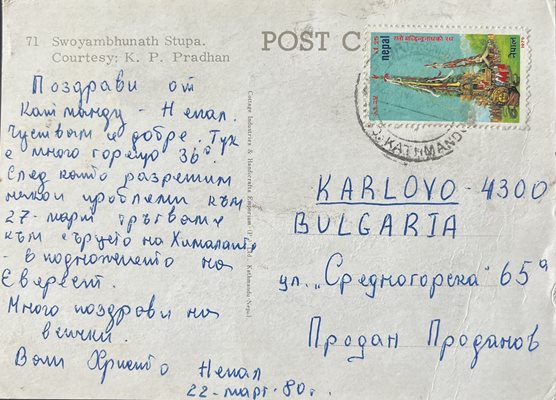 71 Swoyambhunath Stupa.
Courtesy: K. P. Pradhan
POST CA
nepal
नेपाल
KATHMAND
Cottage Industries & Handicrafts Emporium (P) Ltd. Kathmandu Nepal.
Поздрави от
Катманду - Непал.
Чуствам се добре. Тук
е много горещо 36°.
След като разрешим
някои проблеми към
27-март тръгваме
към сърцето на Хималаите
- в подножието на
Еверест.
Много поздрави на
всички.
Ваш Христо Непал
22-март-80г.
KARLOVO - 4300
BULGARIA
ул. „Средногорска" 65а
Продан Проданов